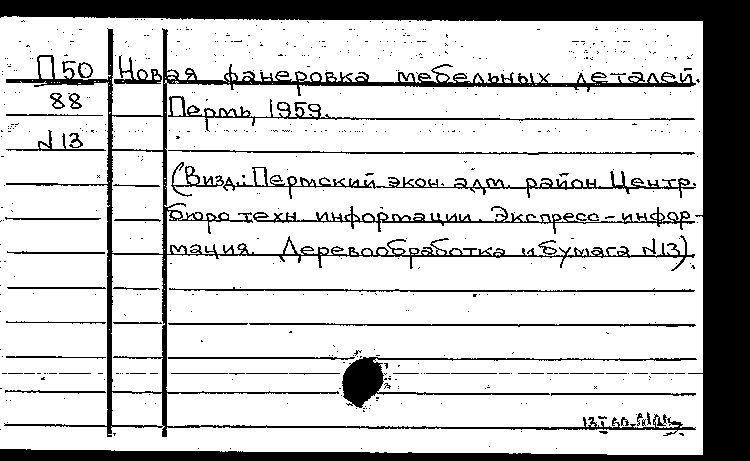 П50 Новая фанеровка мебельных деталей.
88 Пермь, 1959.
N13
(В изд.: Пермский экон. адм. район. Центр.
бюро техн. информации. Экспресс-инфор-
мация. Деревообработка и бумага N13).